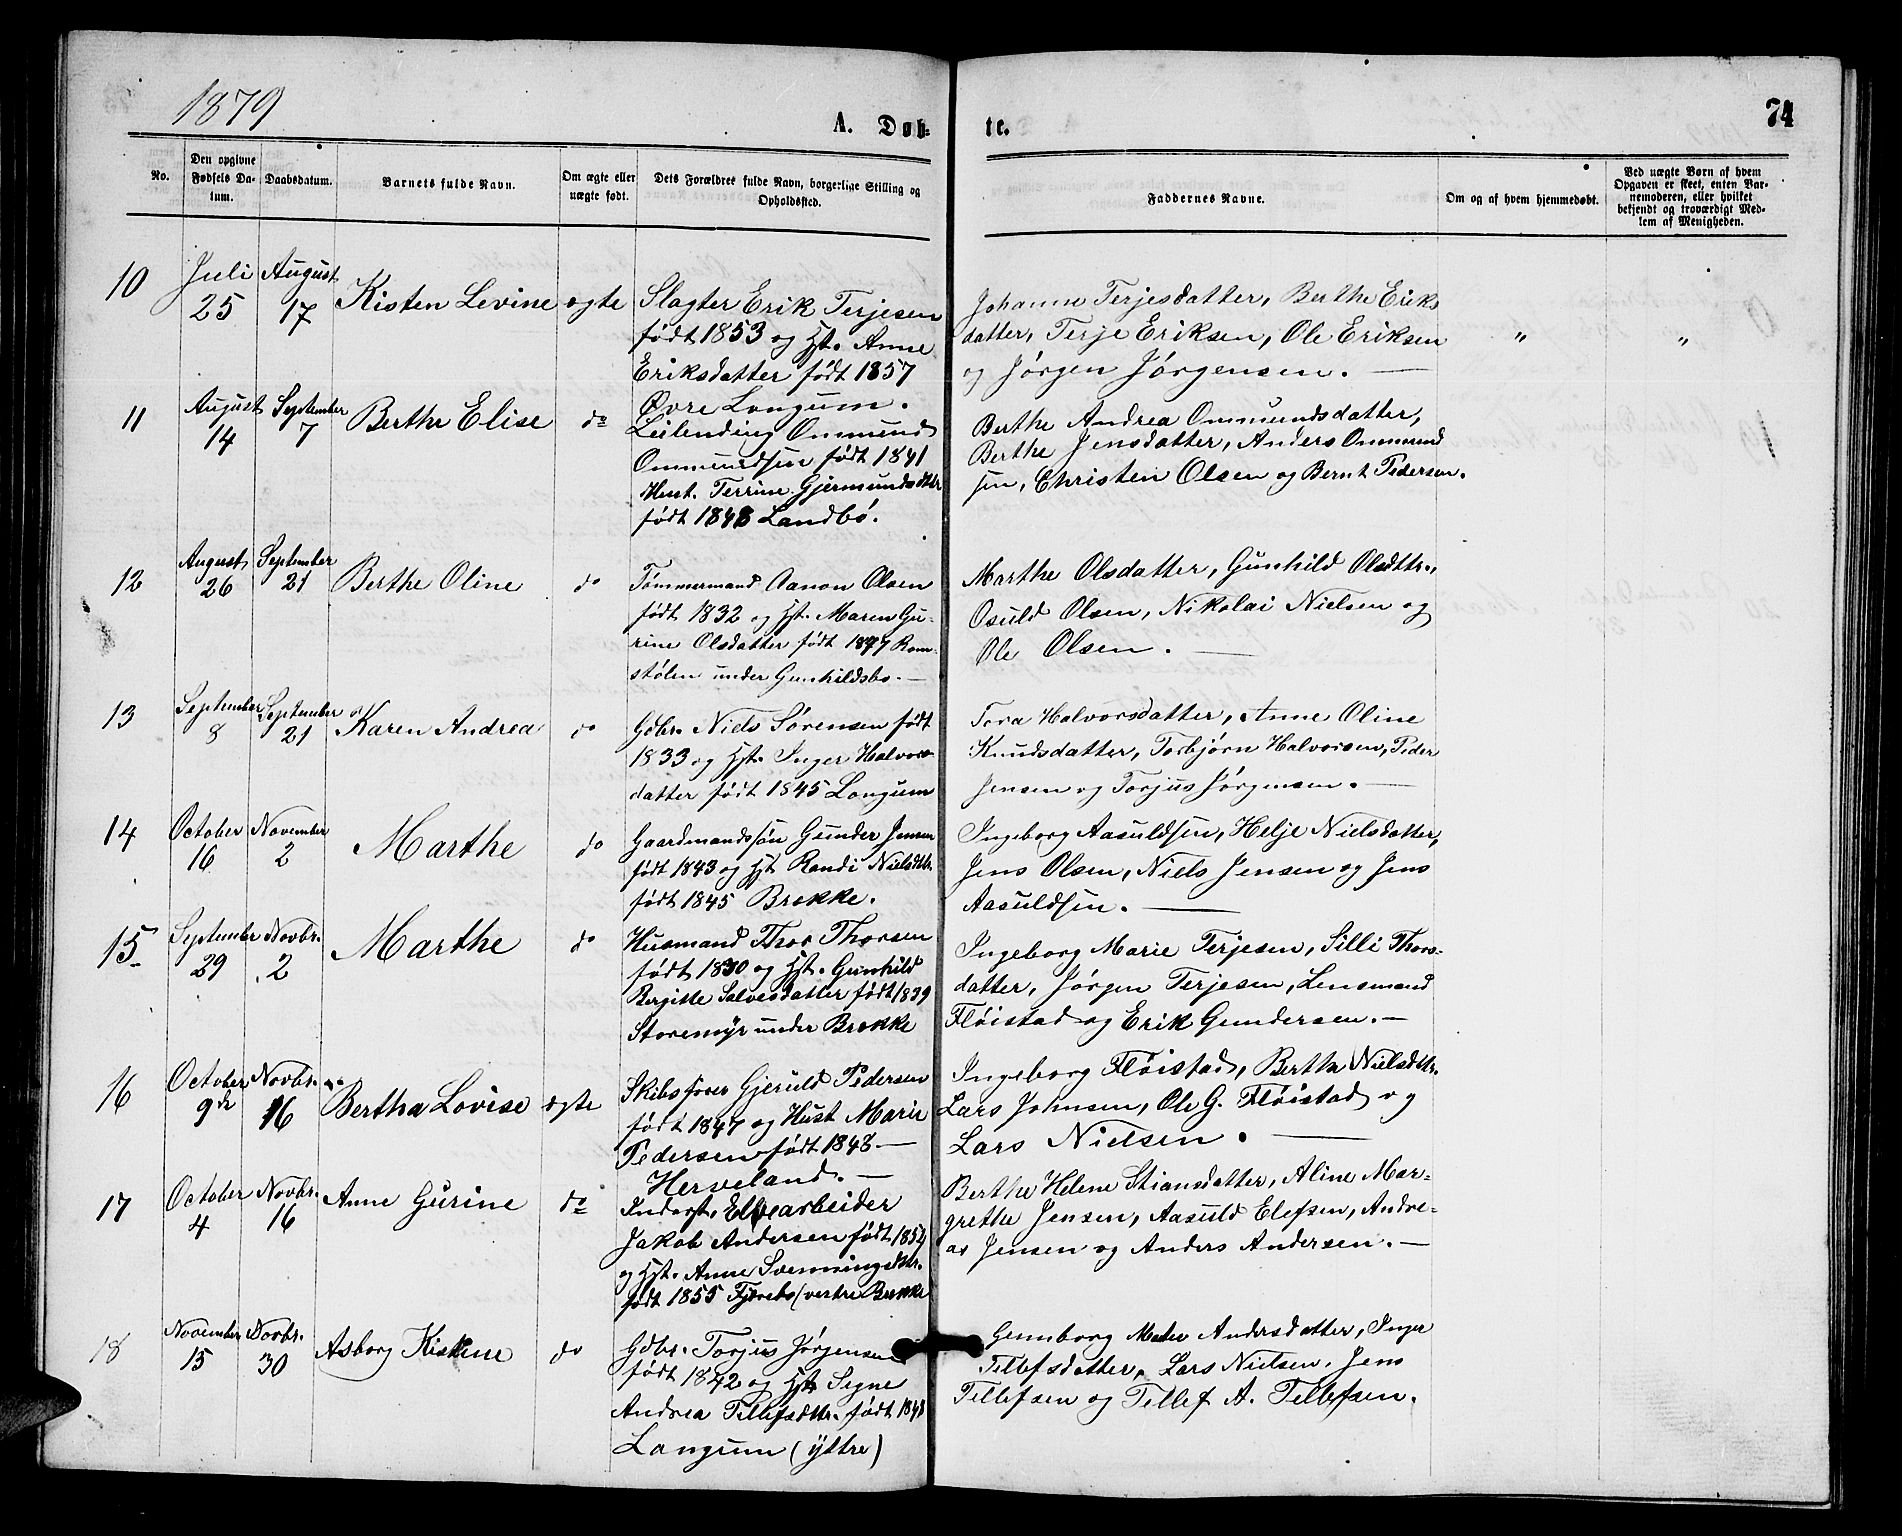 1879
A. Døb-
te.
74
No.
Den opgivne
Fødsels Da-
tum.
Daabsdatum.
Barnets fulde Navn.
Om ægte eller
uægte født.
Dets Forældres fulde Navn, borgerlige Stilling og
Opholdssted.
Faddernes Navne.
Om og af hvem hjemmedøbt.
Ved uægte Børn af hvem
Opgaven er skeet, enten Bar-
nemoderen, eller hvilket
bekjendt og troværdigt Med-
lem af Menigheden.
10
Juli
25
August
17
Kisten Levine
ægte
Slagter Erik Terjesen
født 1853 og Hst. Anne
Eriksdatter født 1857
Øvre Longum.
Johanne Terjesdatter, Berthe Eriks
datter, Terje Eriksen, Ole Eriksen
og Jørgen Jørgensen. —
"
"
11
August
14
September
7
Berthe Elise
do
Leilending Ommund
Ommundsen født 1841
Hust. Terrine Gjermundsdttr
født 1848 Landbø.
Berthe Andrea Ommundsdatter,
Berthe Jensdatter, Anders Ommund
sen, Christen Olsen og Bernt Pedersen.
12
August
26
September
21
Berthe Oline
do
Tømmermand Aanon Olsen
født 1832 og Hst. Maren Gu-
rine Olsdatter født 1847 Rom-
stølen under Gunhildsbo. —
Marthe Olsdatter, Gunhild Olsdttr.,
Osuld Olsen, Nikolai Nielsen og
Ole Olsen. —
13
September
8
September
21
Karen Andrea
do
Gdbr. Niels Sørensen født
1833 og Hst. Inger Halvors-
datter født 1845 Longum
Tora Halvorsdatter, Anne Oline
Knudsdatter, Torbjørn Halvorsen, Peder
Jensen og Torjus Jørgensen. —
14
October
16
November
2
Marthe
do
Gaardmandssøn Gunder Jensen
født 1843 og Hst Randi Nielsdttr.
født 1845 Brekke.
Ingeborg Aasuldsen, Helje Nielsdatter,
Jens Olsen, Niels Jensen og Jens
Aasuldsen. —
15
September
29
Novbr.
2
Marthe
do
Husmand Thor Thorsen
født 1830 og Hst. Gunhild
Bergitte Salvesdatter født 1839
Storemyr under Brekke
Ingeborg Marie Terjesen, Silli Thors-
datter, Jørgen Terjesen, Lensmand
Fløistad og Erik Gundersen. —
16
October
9de
Novbr.
16
Bertha Lovise
ægte
Skibsfører Gjeruld Pedersen
født 1847 og Hust Marie
Pedersen født 1848 —
Herveland. —
Ingeborg Fløistad, Berthe Nielsdttr.
Lars Johnsen, Ole G. Fløistad og
Lars Nielsen. —
17
October
4
Novbr.
16
Anne Gurine
do
Inderst, Elvearbeider
Jakob Andersen født 1854
og Hst. Anne Svenningsdttr.
født 1855 Fjærebo (vestre Brekke
Berthe Helene Stiansdatter, Aline Mar-
grethe Jensen, Aasuld Elefsen, Andre-
as Jensen og Anders Andersen. —
18
November
15
Novbr.
30
Asborg Kistine
do
Gdbr. Torjus Jørgensen
født 1842 og Hst Segne
Andrea Tellefsdttr. født 1848
Langum (ÿttre)
Gunnborg Andersdatter, Inger
Tellefsdatter, Lars Nielsen, Jens
Tellefsen og Tellef A. Tellefsen.